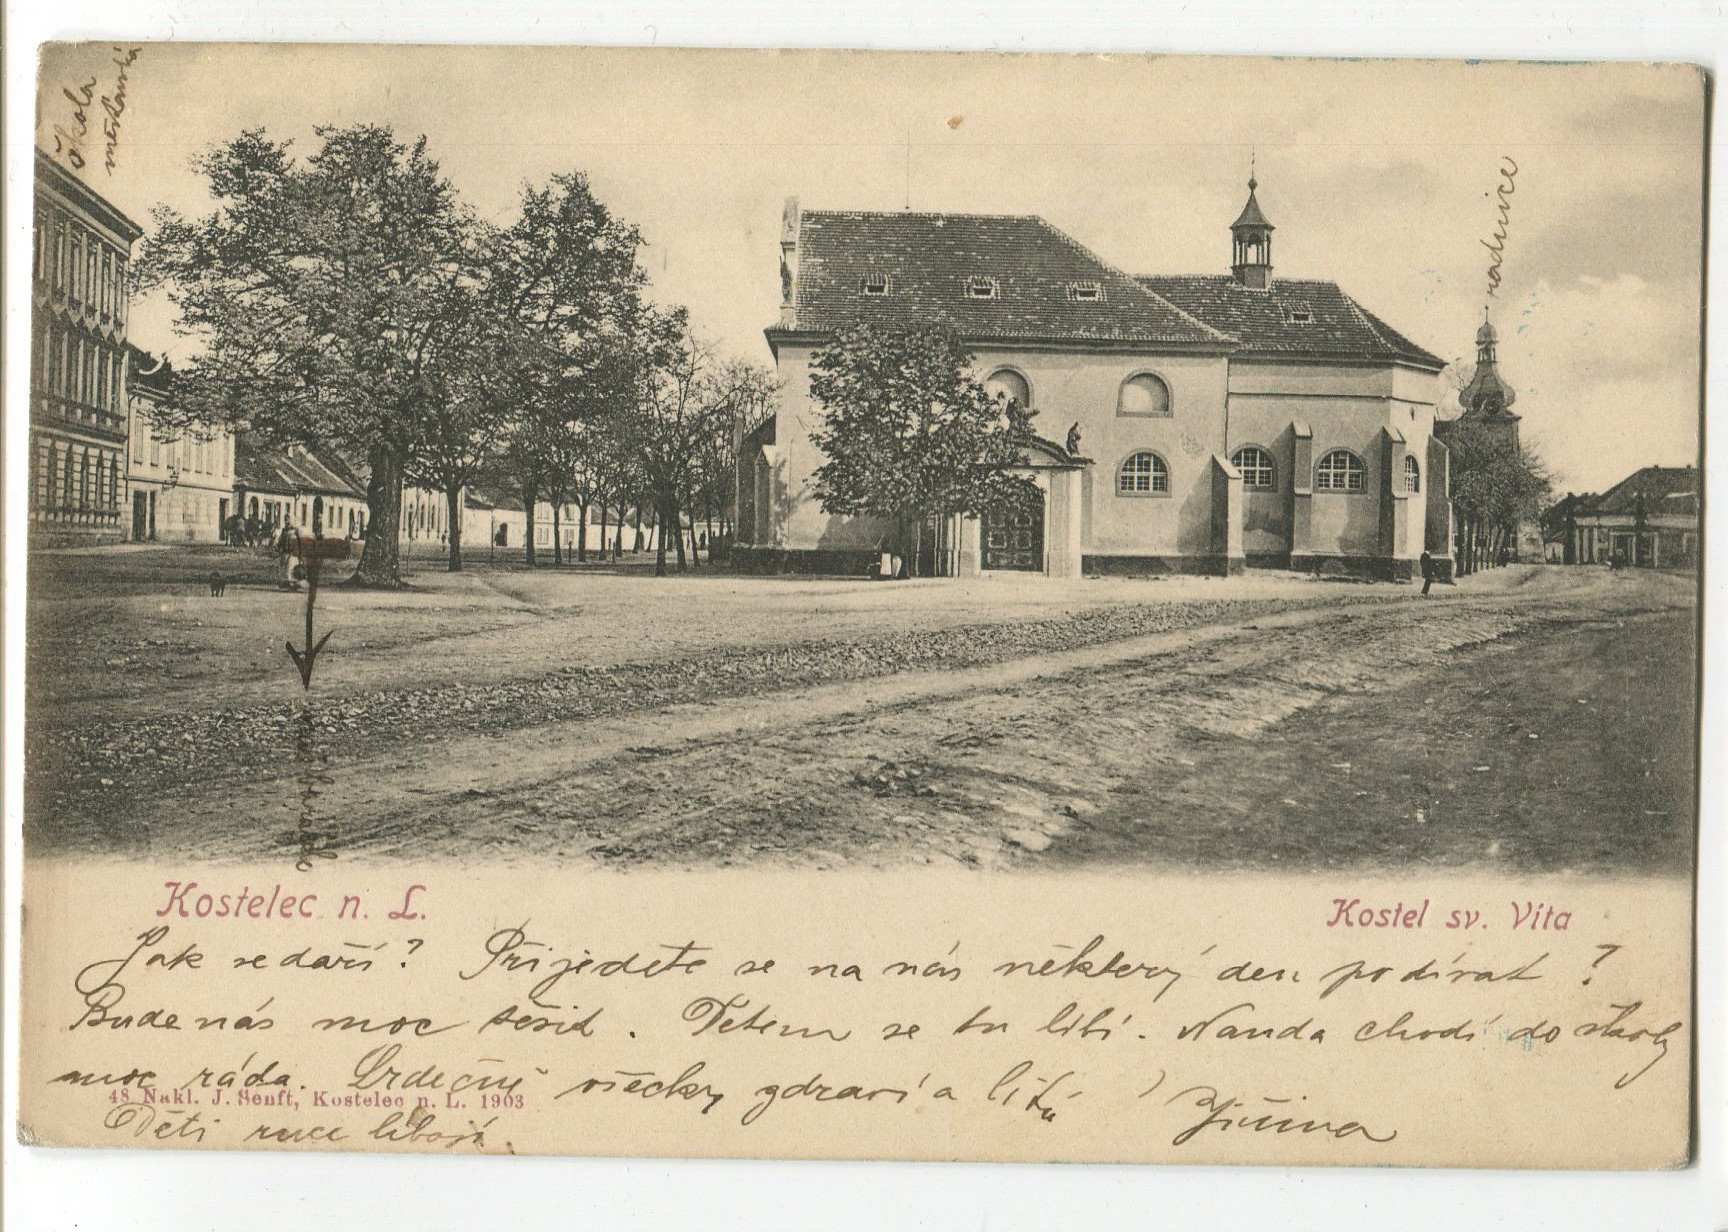 Škola
měšťanská
radnice
Kostelec n. L.
Kostel sv. Víta
Jak se daří? Přijedete se na nás některý den podívat?
Bude nás moc těšit. Dětem se tu líbí. Nanda chodí do školy
moc ráda. Srdečně všecky zdraví a líbá
48 Nakl. J. Senft, Kostelec n. L. 1903
Děti ruce líbají.